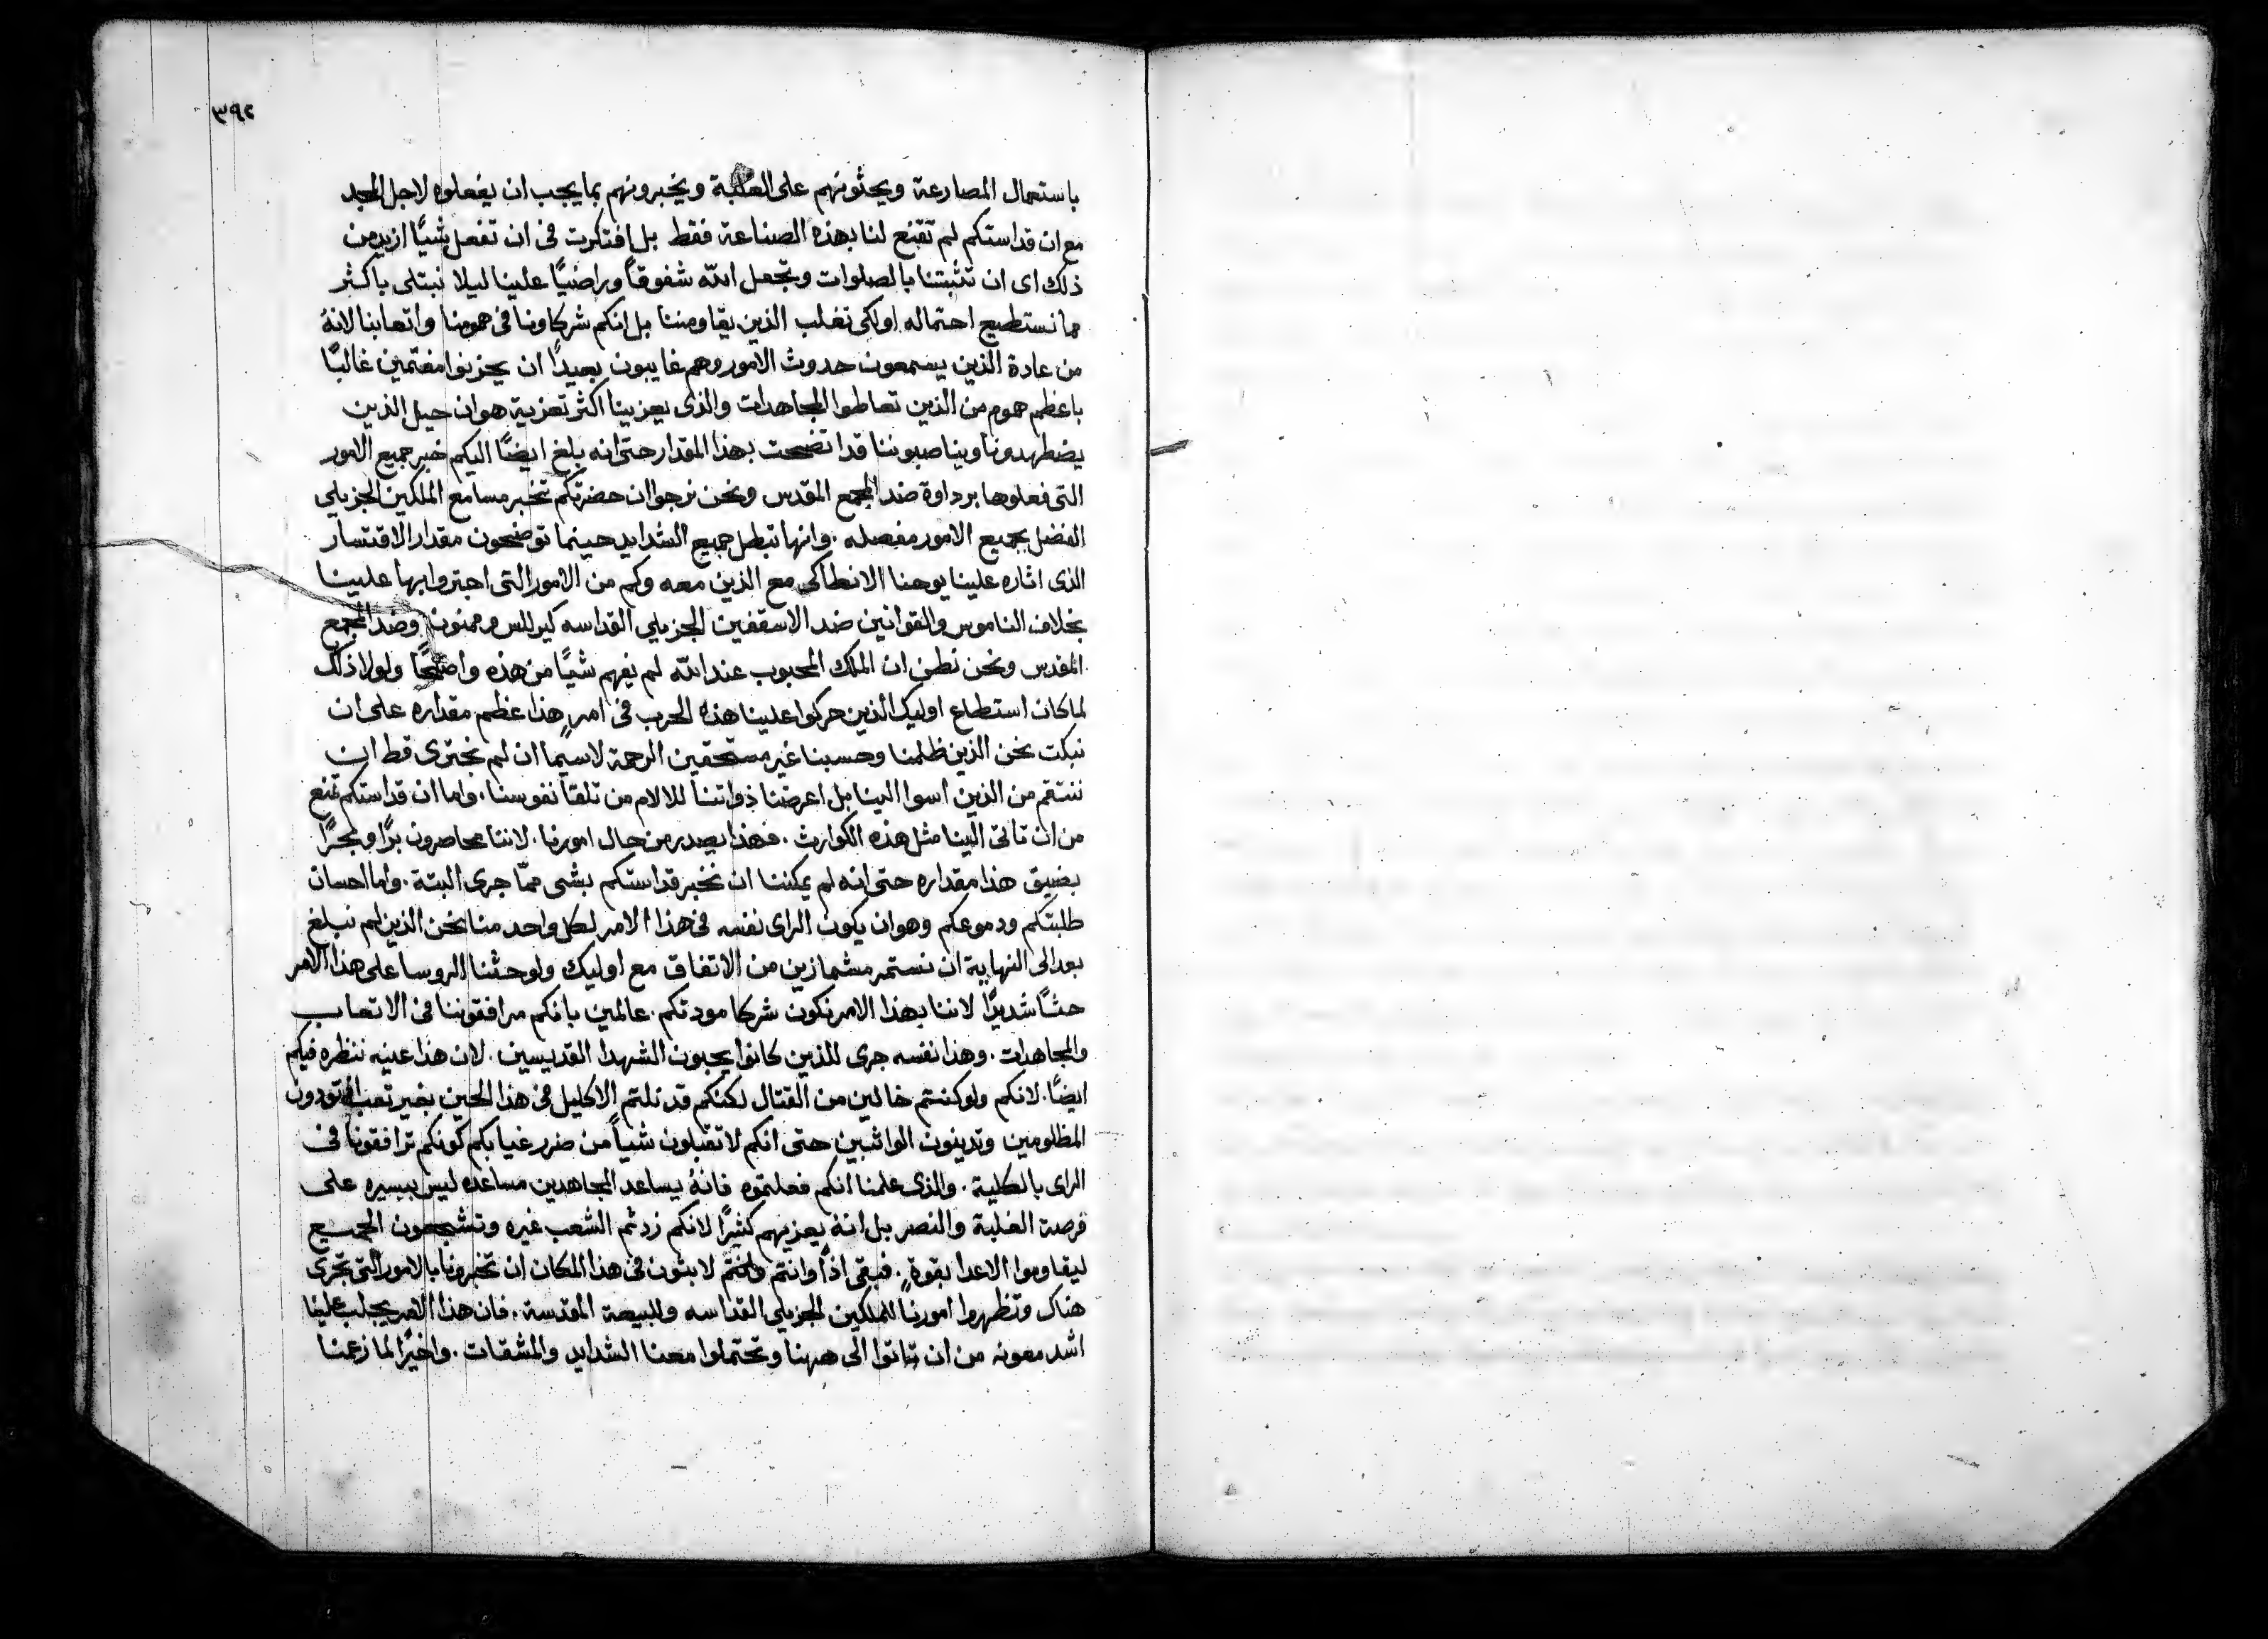 ٣٩٢
باستعمال المصارعة ويحثونهم على الغلبة ويخبرونهم بما يجب ان يفعلوه لاجل المجد
مع ان قداستكم لم تقنع لنا بهذه الصناعة فقط بل افتكرت فى ان تفعل شيًا ازيد من
ذلك اى ان تثبتنا بالصلوات وتجعل الله شفوقاً وراضيًا علينا ليلا نبتلى باكثر
مما نستطيع احتماله او لكى نغلب الذين يقاومننا بل انكم شركاونا فى همومنا واتعابنا لانهُ
من عادة الذين يسمعون حدوث الامور وهم غايبون بعيدًا ان يحزنوا مغتمين غالبًا
باعظم هموم من الذين تعاطوا المجاهدات والذى يعزينا اكثر تعزية هو ان حيل الذين
يضطهدونا ويناصبوننا قد اتضحت بهذا المقدار حتى انه بلغ ايضًا اليكم خبر جميع الامور
التى فعلوها برداوة ضد المجمع المقدس ونحن نرجوا ان حضرتكم تخبر مسامع الملكين الجزيلى
الفضل بجميع الامور مفصله . وانها تبطل جميع الشدايد حينما توضحون مقدار الاقتسار
الذى اثاره علينا يوحنا الانطاكى مع الذين معه وكم من الامور التى اجتروا بها علينا
بخلاف الناموس والقوانين ضد الاسقفين الجزيلى القداسه كيرللس وممنون وضد المجمع
المقدس ونحن نظن ان الملك المحبوب عند الله لم يفهم شيًا من هذه واضحًا ولولا ذلك
لما كان استطاع اوليك الذين حركوا علينا هذه الحرب فى امرٍ هذا عظم مقداره على ان
نبكت نحن الذين ظلمنا وحسبنا غير مستحقين الرحمة لاسيما ان لم نجترى قط ان
ننتقم من الذين اسوا الينا بل اعرضنا ذواتنا للالام من تلقا نفوسنا . واما ان قداستكم تمنع
من ان تاتى الينا مثل هذه الكوارث . فهذا يصدر من حال امورنا . لاننا محاصرون برًا وبحرًا
بضيق هذا مقداره حتى انه لم يمكننا ان نخبر قداستكم بشى ممّا جرى البتة . واما احسان
طلبتكم ودموعكم وهو ان يكون الراى نفسه فى هذا الامر لكل واحد منا نحن الذين لم نبلغ
بعد الى النهاية ان نستمر مشمازين من الاتفاق مع اوليك ولو حثنا الروسا على هذا الامر
حثًا شديدًا لاننا بهذا الامر نكون شركا مودتكم . عالمين بانكم مرافقوننا فى الاتعاب
والمجاهدات . وهذا نفسه جرى للذين كانوا يحبون الشهدا القديسين . لان هذا عينه ننظره فيكم
ايضًا . لانكم ولو كنتم خالين من القتال لكنكم قد نلتم الاكليل فى هذا الحين بغير تعب تودون
المظلومين وتدينون الواثبين حتى انكم لا تقبلون شياً من ضرر غيابكم كونكم ترافقونا فى
الراى بالكلية . والذى علمنا انكم فعلتموه فانهُ يساعد المجاهدين مساعده ليس بيسيره على
فرصة الغلبة والنصر بل انهُ يعزيهم كثيرًا لانكم زدتم الشعب غيره وتشجعون الجميع
ليقاوموا الاعدا بقوةٍ . فبقى اذًا وانتم لابثون فى هذا المكان ان تخبرونا بالامور التى تجرى
هناك وتظهروا امورنا للملكين الجزيلى القداسه وللبيعة المقدسة . فان هذا الامر يجلب علينا
اشد معونه من ان تاتوا الى ههنا وتحتملوا معنا الشدايد والمشقات . واخيرًا لما زعمنا